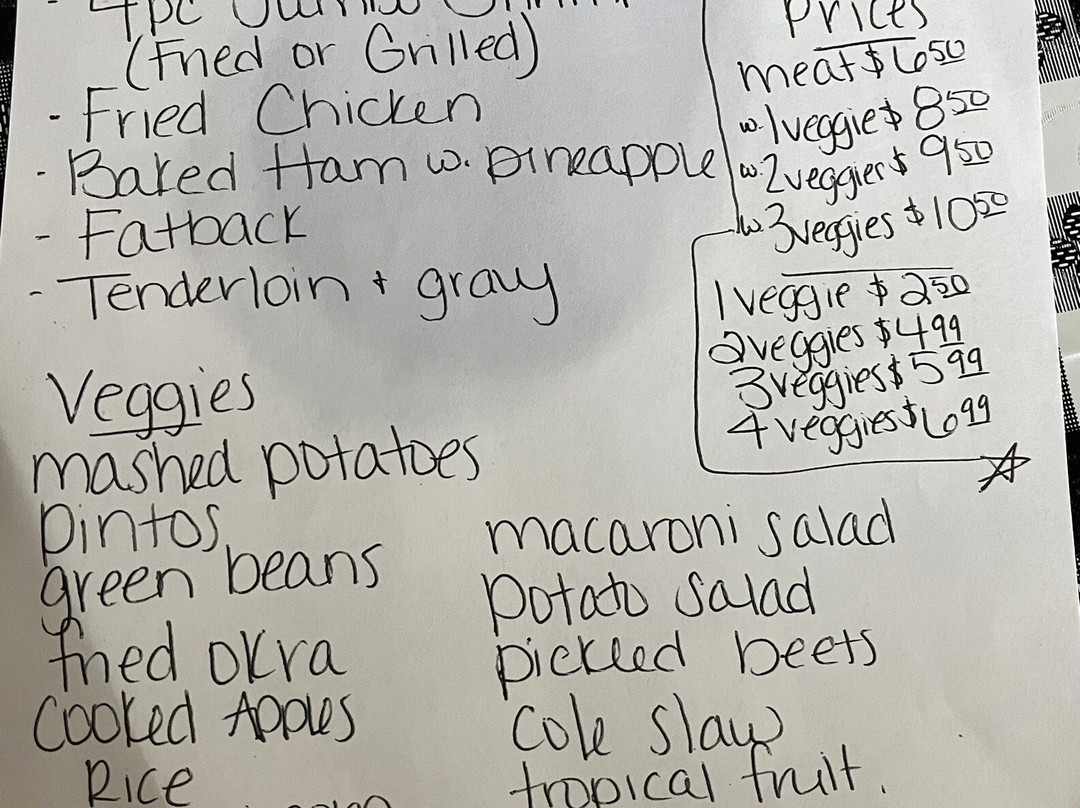 - 4pc Jumbo Shrimp
(Fried or Grilled)
- Fried Chicken
- Baked Ham w. pineapple
- Fatback
- Tenderloin + gravy
Prices
meat $6.50
w. 1 veggie $8.50
w. 2 veggies $9.50
w. 3 veggies $10.50
1 veggie $2.50
2 veggies $4.99
3 veggies $5.99
4 veggies $6.99
Veggies
mashed potatoes
pintos
green beans
fried okra
Cooked Apples
Rice
macaroni salad
potato salad
pickled beets
Cole slaw
tropical fruit.